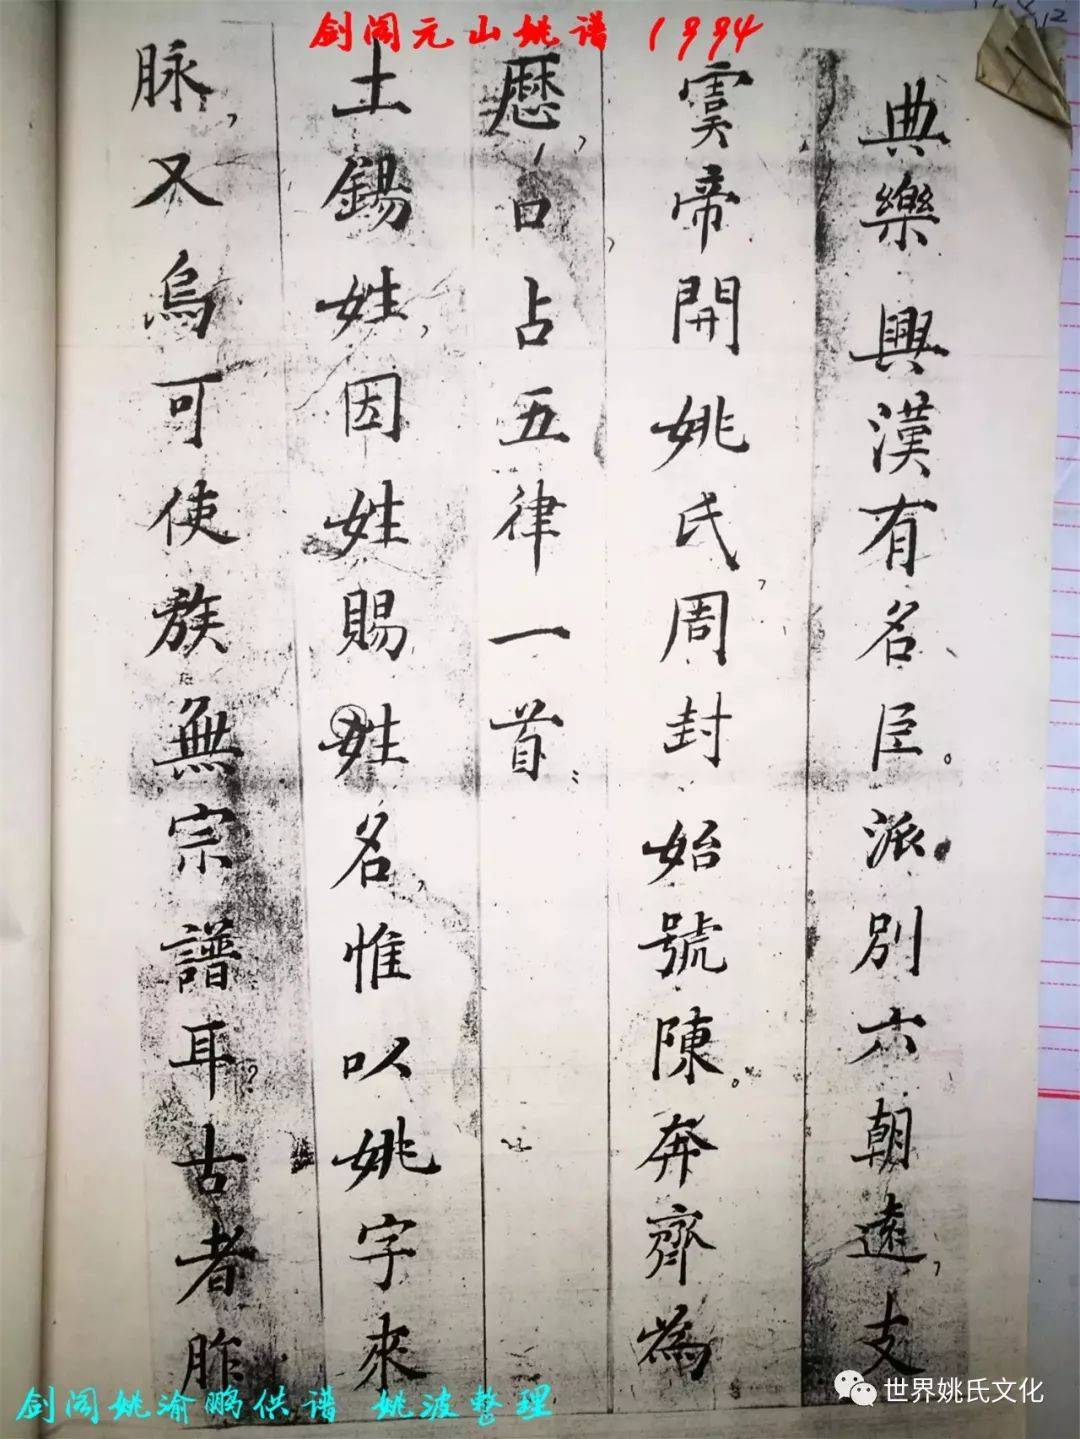 剑阁元山姚谱 1994
脉,又烏可使族無宗譜耳?古者胙
土錫姓,因姓賜姓名,惟以姚字來
厯,口占五律一首:
虞帝開姚氏,周封始號陳。奔齊為
典樂 興漢有名臣。派別六朝遠,支
剑阁姚渝鹏供谱 姚波整理
世界姚氏文化